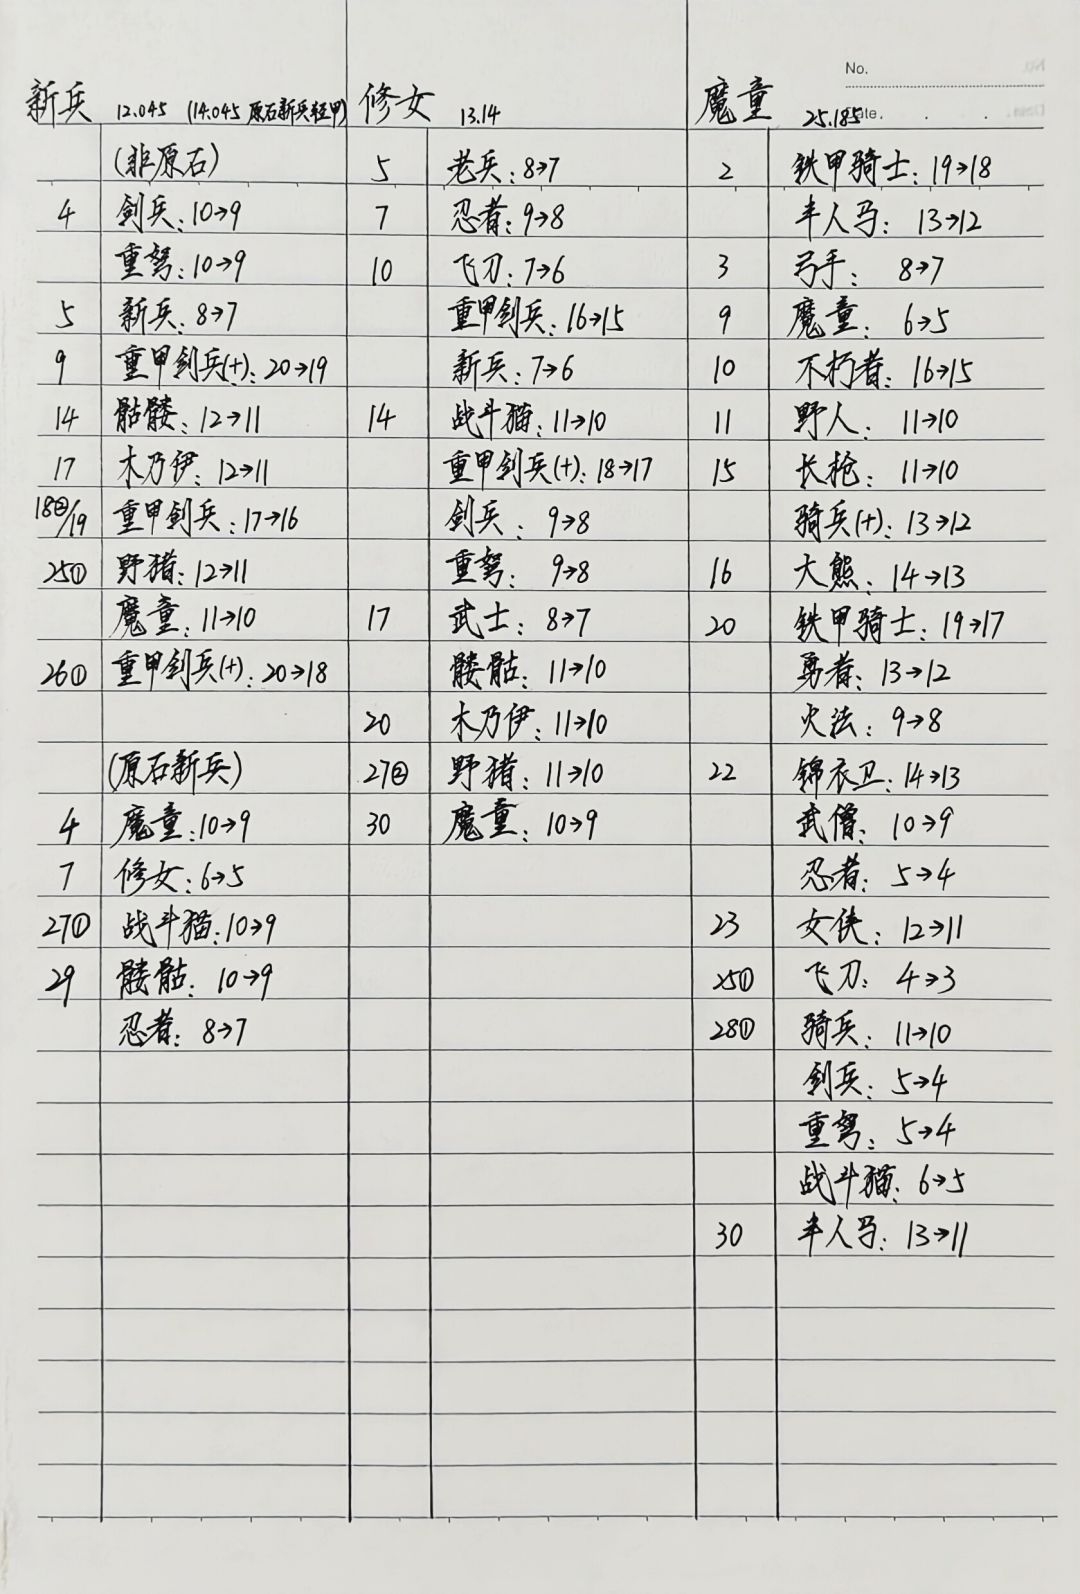 No.
新兵 12.045 (14.045 原石新兵轻甲)
(非原石)
4 剑兵:10→9
重弩:10→9
5 新兵:8→7
9 重甲剑兵(+):20→19
14 骷髅:12→11
17 木乃伊:12→11
18②/19 重甲剑兵:17→16
25① 野猪:12→11
魔童:11→10
26① 重甲剑兵(+):20→18
(原石新兵)
4 魔童:10→9
7 修女:6→5
27① 战斗猫:10→9
29 髅骷:10→9
忍者:8→7
修女 13.14
5 老兵:8→7
7 忍者:9→8
10 飞刀:7→6
重甲剑兵:16→15
新兵:7→6
14 战斗猫:11→10
重甲剑兵(+):18→17
剑兵:9→8
重弩:9→8
17 武士:8→7
髅骷:11→10
20 木乃伊:11→10
27② 野猪:11→10
30 魔童:10→9
魔童 25.185
2 铁甲骑士:19→18
半人马:13→12
3 弓手:8→7
9 魔童:6→5
10 不朽者:16→15
11 野人:11→10
15 长枪:11→10
骑兵(+):13→12
16 大熊:14→13
20 铁甲骑士:19→17
勇者:13→12
火法:9→8
22 锦衣卫:14→13
武僧:10→9
忍者:5→4
23 女侠:12→11
25① 飞刀:4→3
28① 骑兵:11→10
剑兵:5→4
重弩:5→4
战斗猫:6→5
30 半人马:13→11